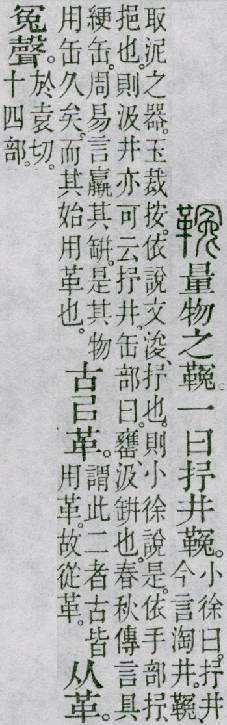 𩌑量物之𩌑。一曰抒井𩌑。
小徐曰。抒井
今言淘井。𩌑
取泥之器。玉裁按。依說文浚、抒也。則小徐說是。依手部抒、
挹也。則汲井亦可云抒井。缶部曰。罋、汲缾也。春秋傳言具
綆缶。周易言羸其缾。是其物
用缶久矣。而其始用革也。
古㠯革。
謂此二者古皆
用革。故從革。
从革。
冤聲。
於袁切。
十四部。